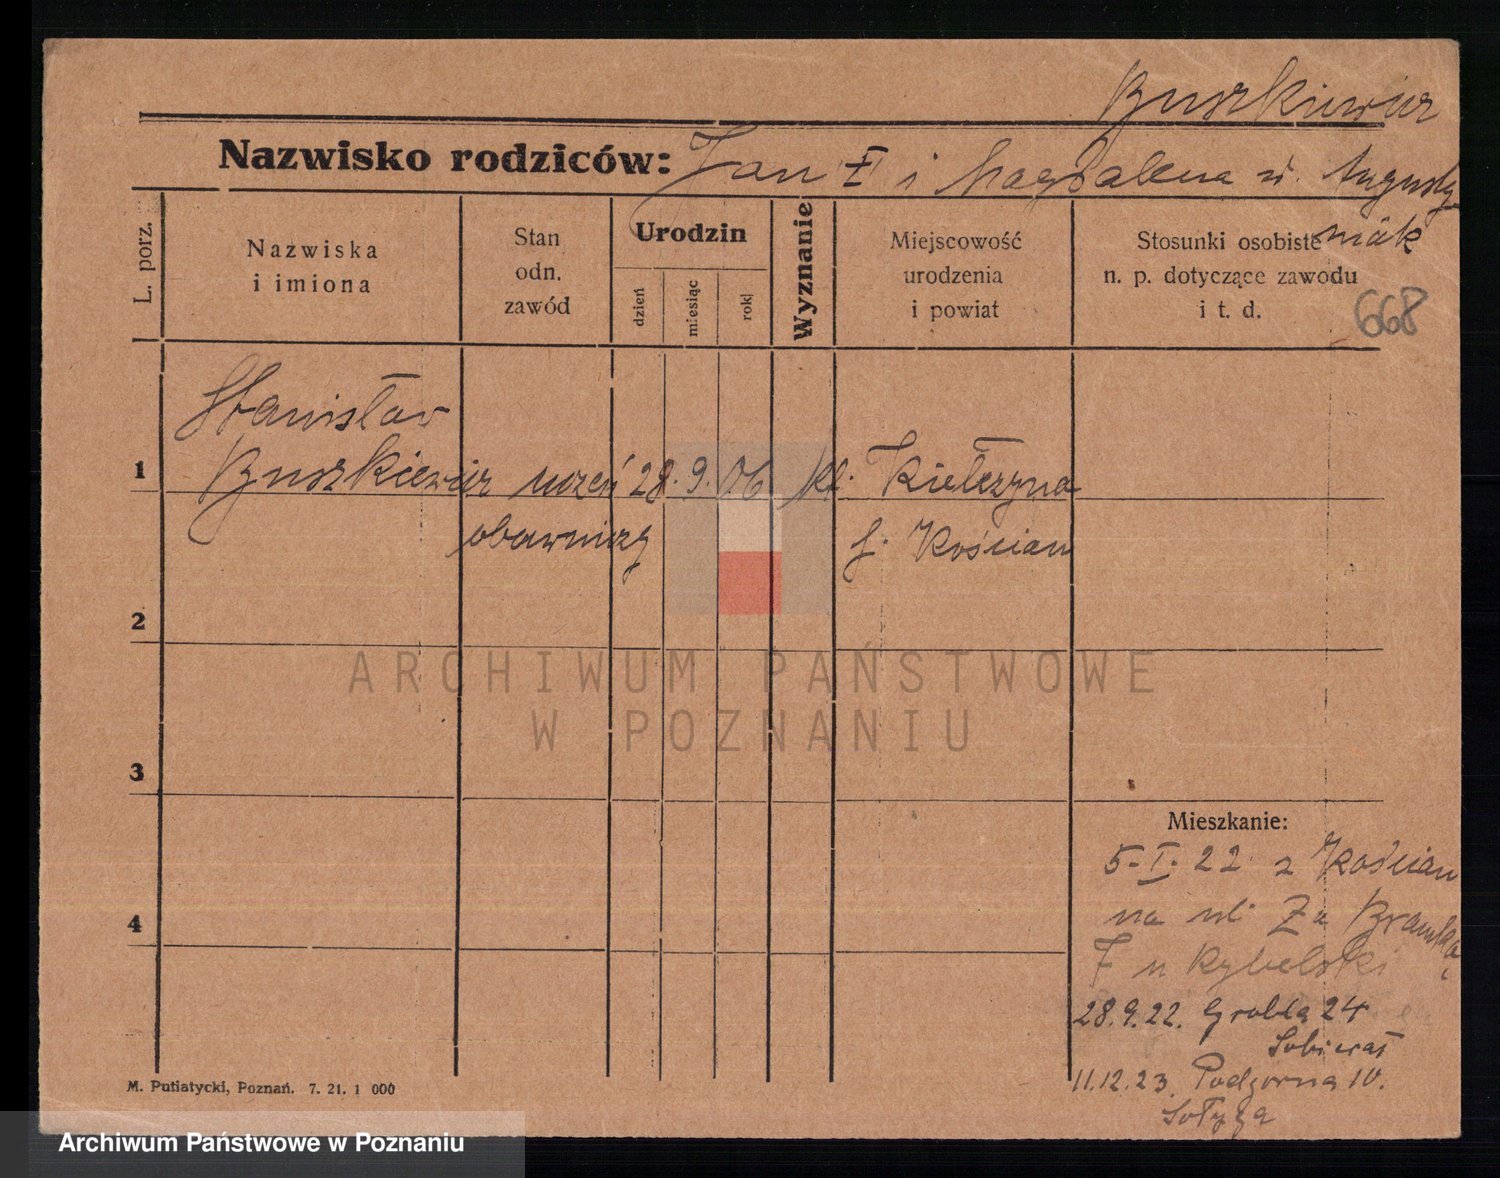 Buszkiewicz
Nazwisko rodziców: Jan † i Magdalena z d. Augusty
niak
L. porz.
Nazwiska
i imiona
Stan
odn.
zawód
Urodzin
dzień
miesiąc
rok
Wyznanie
Miejscowość
urodzenia
i powiat
Stosunki osobiste
n. p. dotyczące zawodu
i t. d.
668
Stanisław
1 Buszkiewicz uczeń 28. 9. 06 kt. Kiełczyna
obawniczy p. Kościan
2
ARCHIWUM PAŃSTWOWE
W POZNANIU
3
Mieszkanie:
5-I. 22 z Kościan
na ul. Za Bramką
4
7 u Rybelski
28.9.22. Grobla 24
11.12.23. Podgorna 10.
M. Putiatycki, Poznań. 7. 21. 1 000
Archiwum Państwowe w Poznaniu